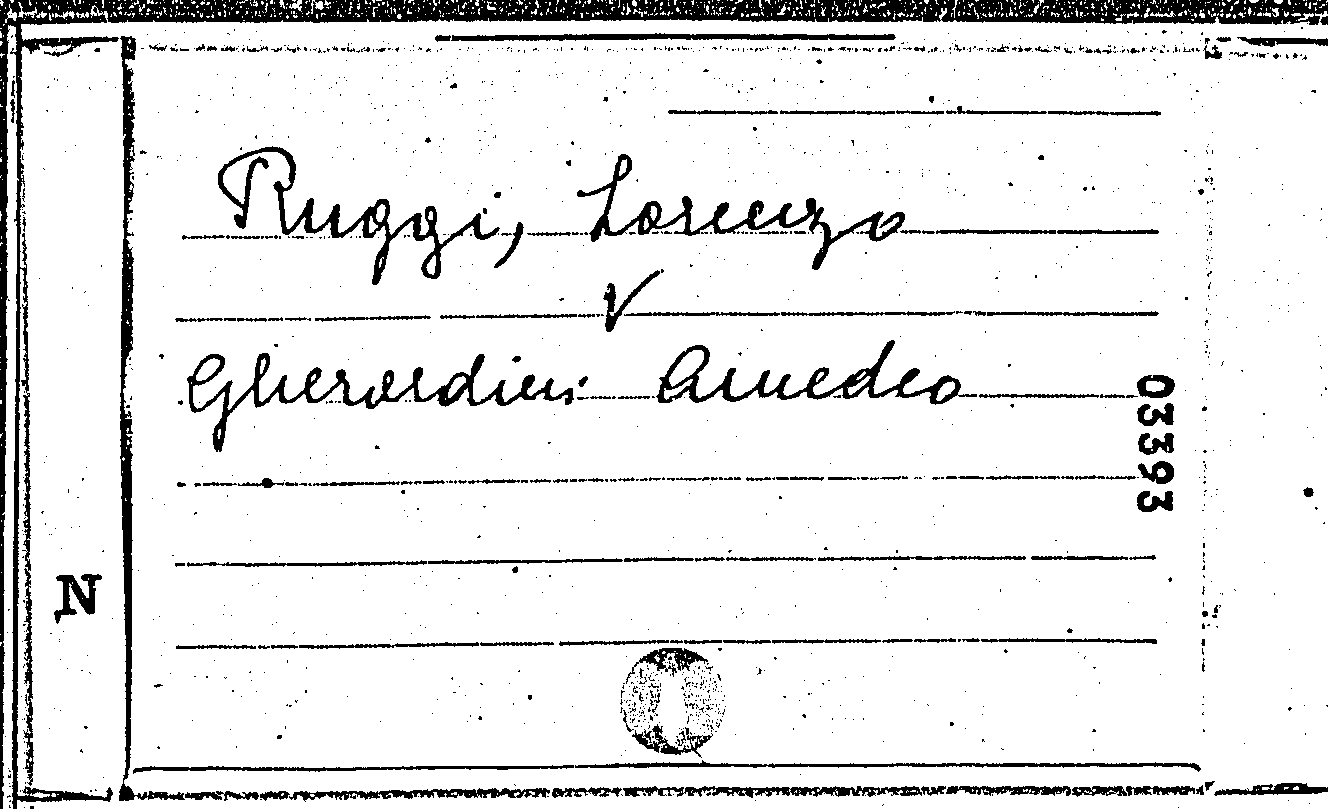 Ruggi, Lorenzo
V
Gherardini Amedeo
03393
N